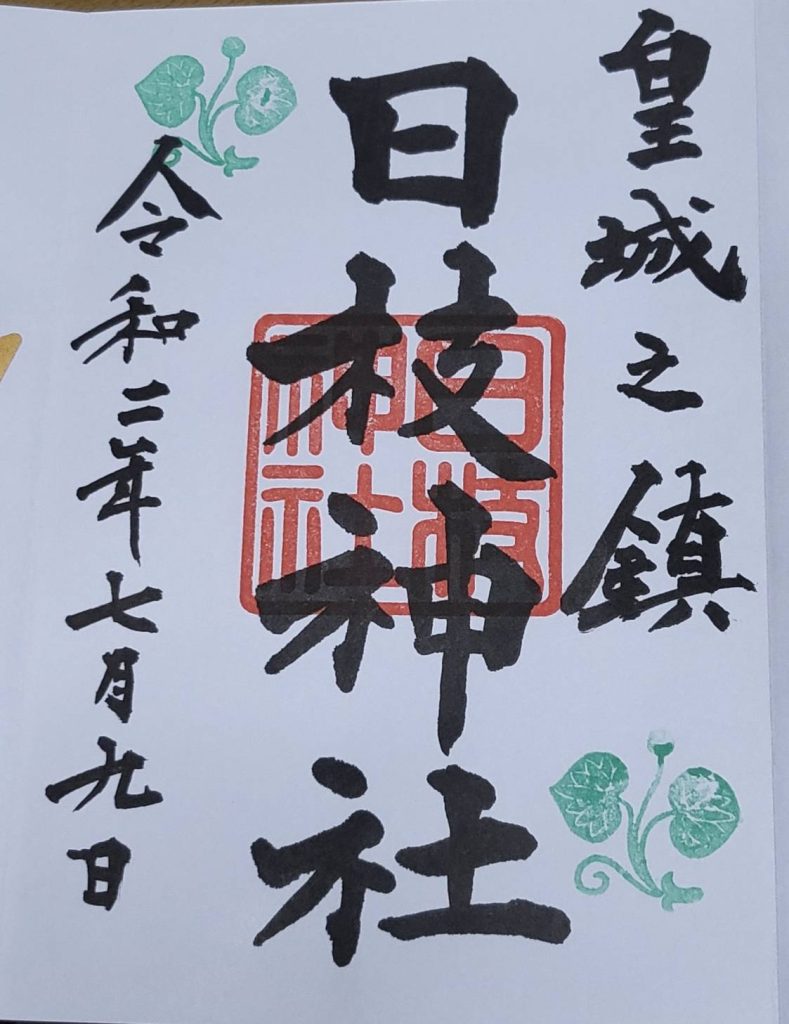 皇城之鎮
日枝神社
日枝神社
令和二年七月九日